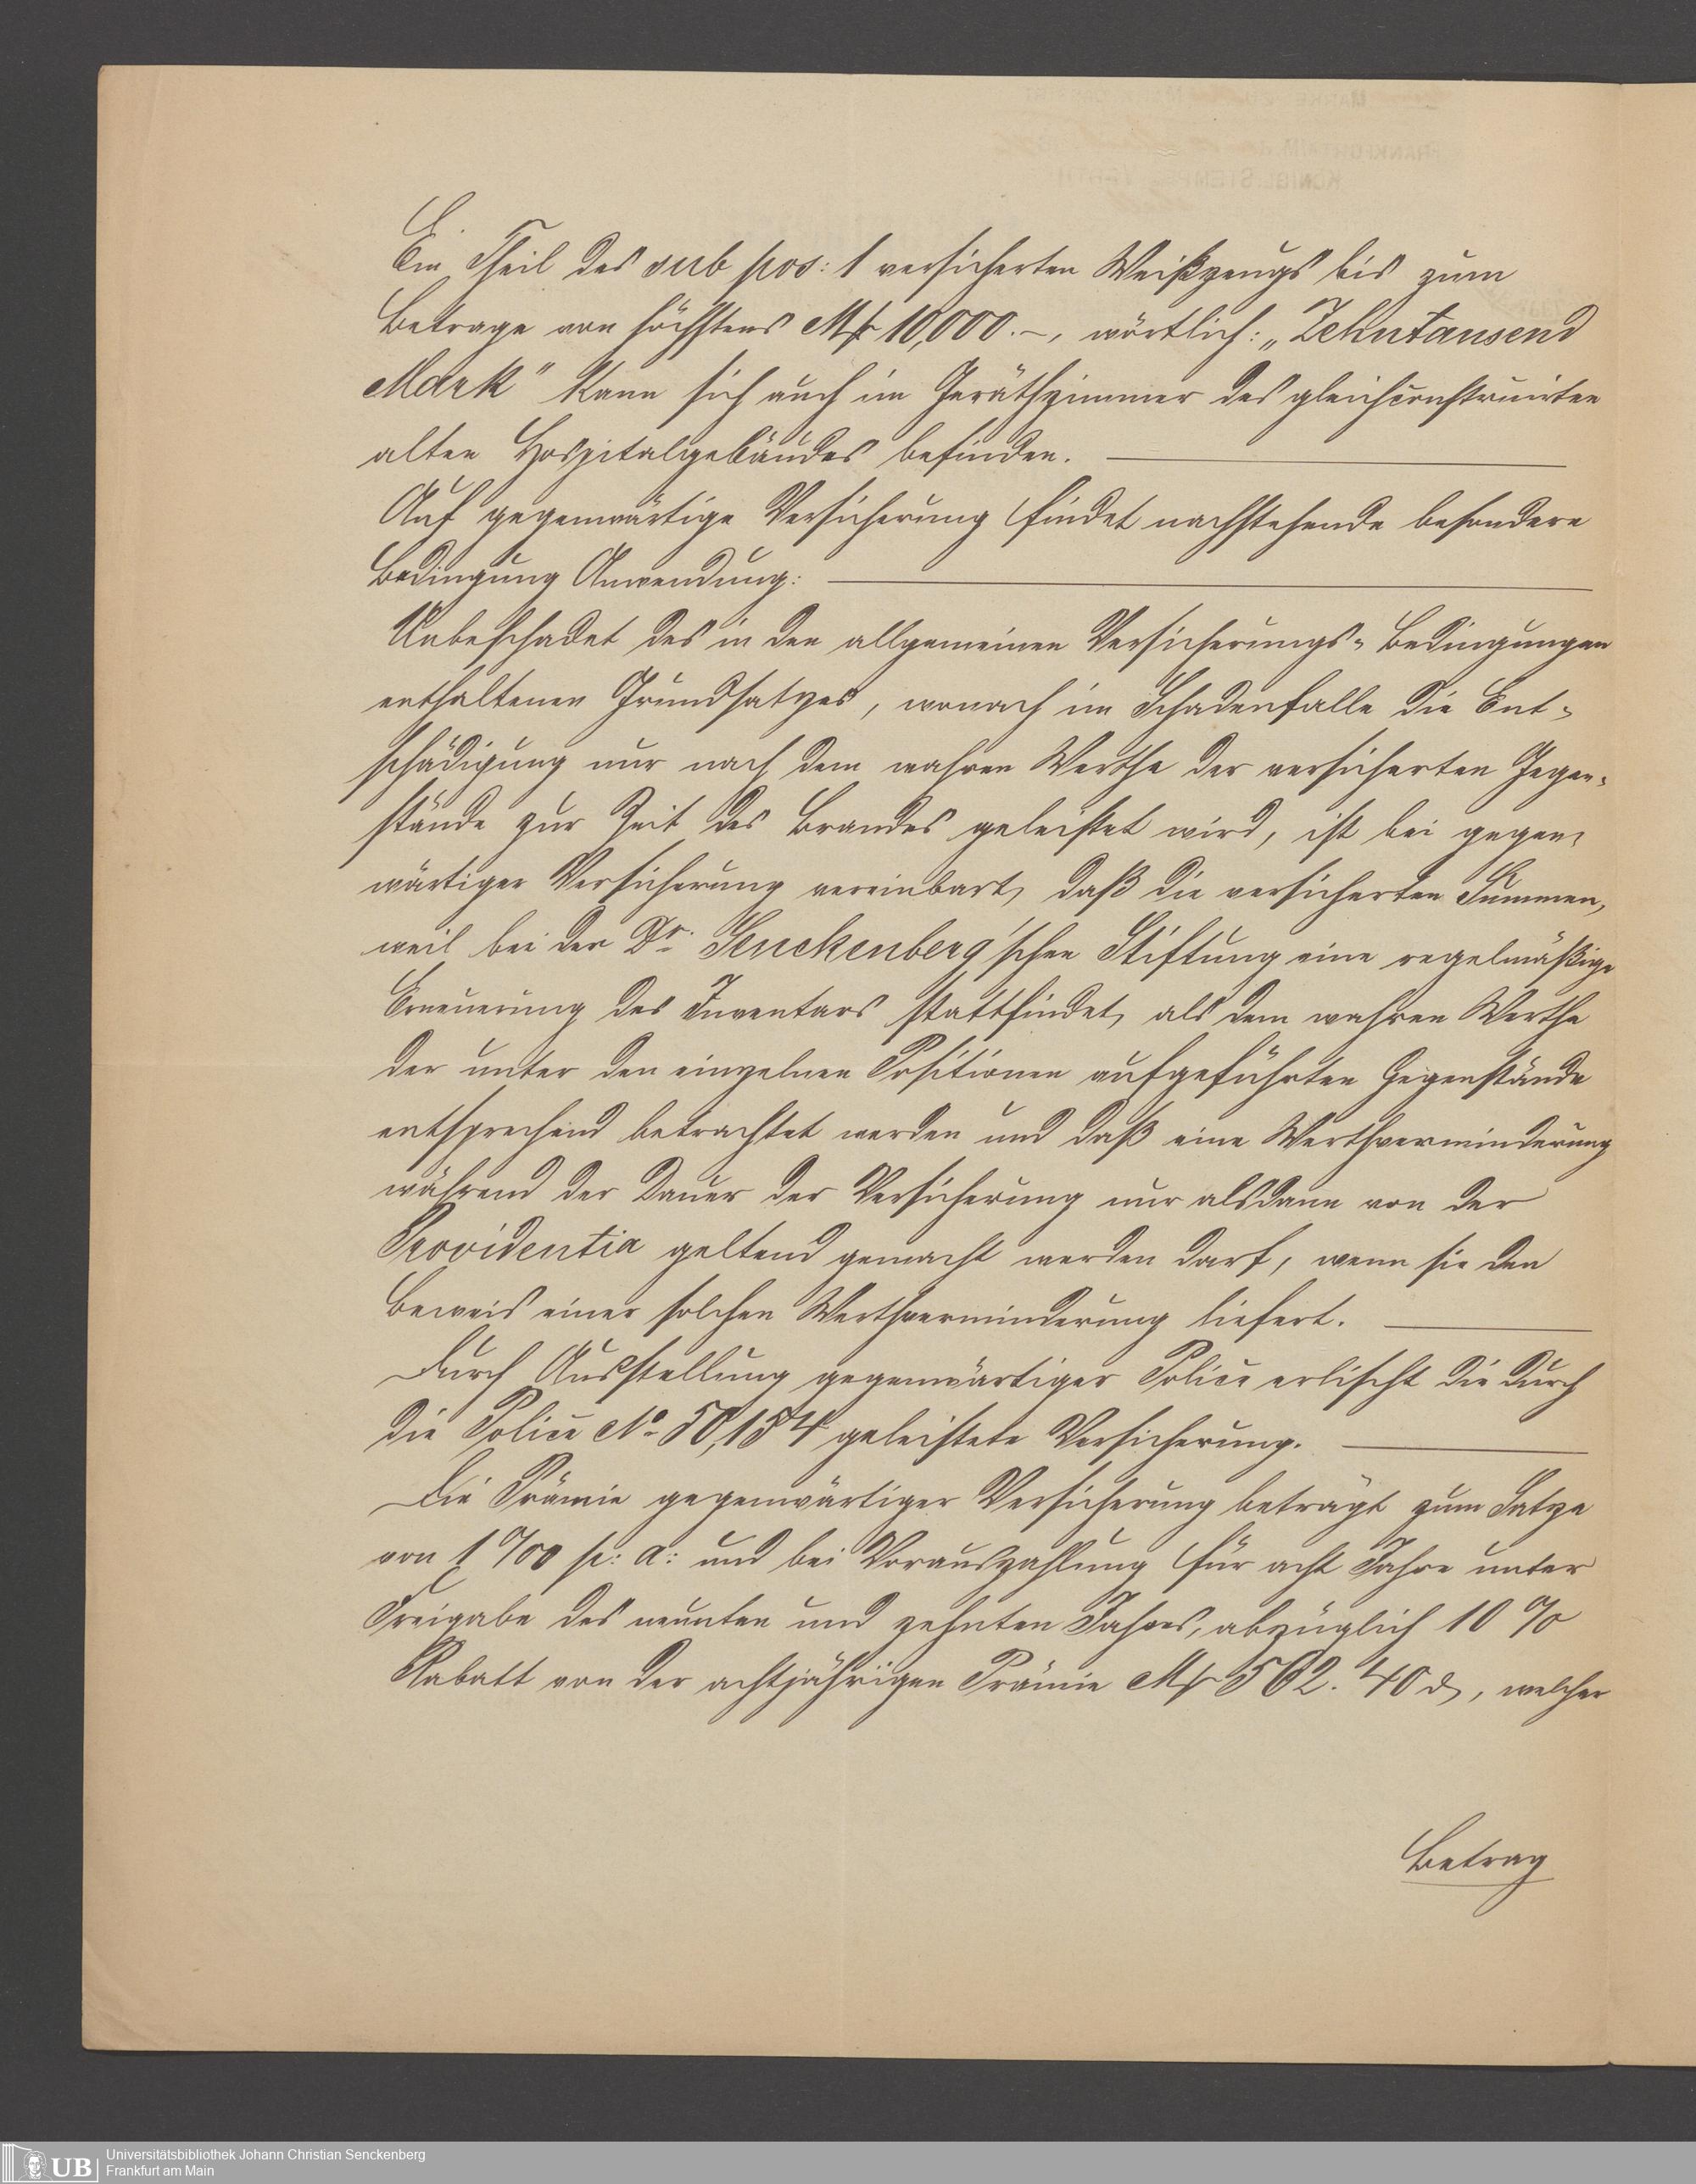 Ein Theil des sub pos: 1 versicherten Weißzeugs bis zum
Betrage von höchstens Mk 10,000.–, wörtlich: „Zehntausend
Mark" kann sich auch im Geräthzimmer des gleichconstruirten
alten Hospitalgebäudes befinden.
Auf gegenwärtige Versicherung findet nachstehende besondere
Bedingung Anwendung:
Unbeschadet des in den allgemeinen Versicherungs-Bedingungen
enthaltenen Grundsatzes, wonach im Schadenfalle die Ent-
schädigung nur nach dem wahren Werthe der versicherten Gegen-
stände zur Zeit des Brandes geleistet wird, ist bei gegen-
wärtiger Versicherung vereinbart, daß die versicherten Summen,
weil bei der Dr. Senckenberg'schen Stiftung eine regelmäßige
Erneuerung des Inventars stattfindet, als dem wahren Werthe
der unter den einzelnen Positionen aufgeführten Gegenstände
entsprechend betrachtet werden und daß eine Werthverminderung
während der Dauer der Versicherung nur alsdann von der
Providentia geltend gemacht werden darf, wenn sie den
Beweis einer solchen Werthverminderung liefert.
Durch Ausstellung gegenwärtiger Police erlischt die durch
die Police No. 50,154 geleistete Versicherung.
Die Prämie gegenwärtiger Versicherung beträgt zum Satze
von 1 ‰ p: a: und bei Vorauszahlung für acht Jahre unter
Freigabe des neunten und zehnten Jahres, abzüglich 10 %
Rabatt von der achtjährigen Prämie Mk 562. 40 d, welcher
Betrag
UB
Universitätsbibliothek Johann Christian Senckenberg
Frankfurt am Main